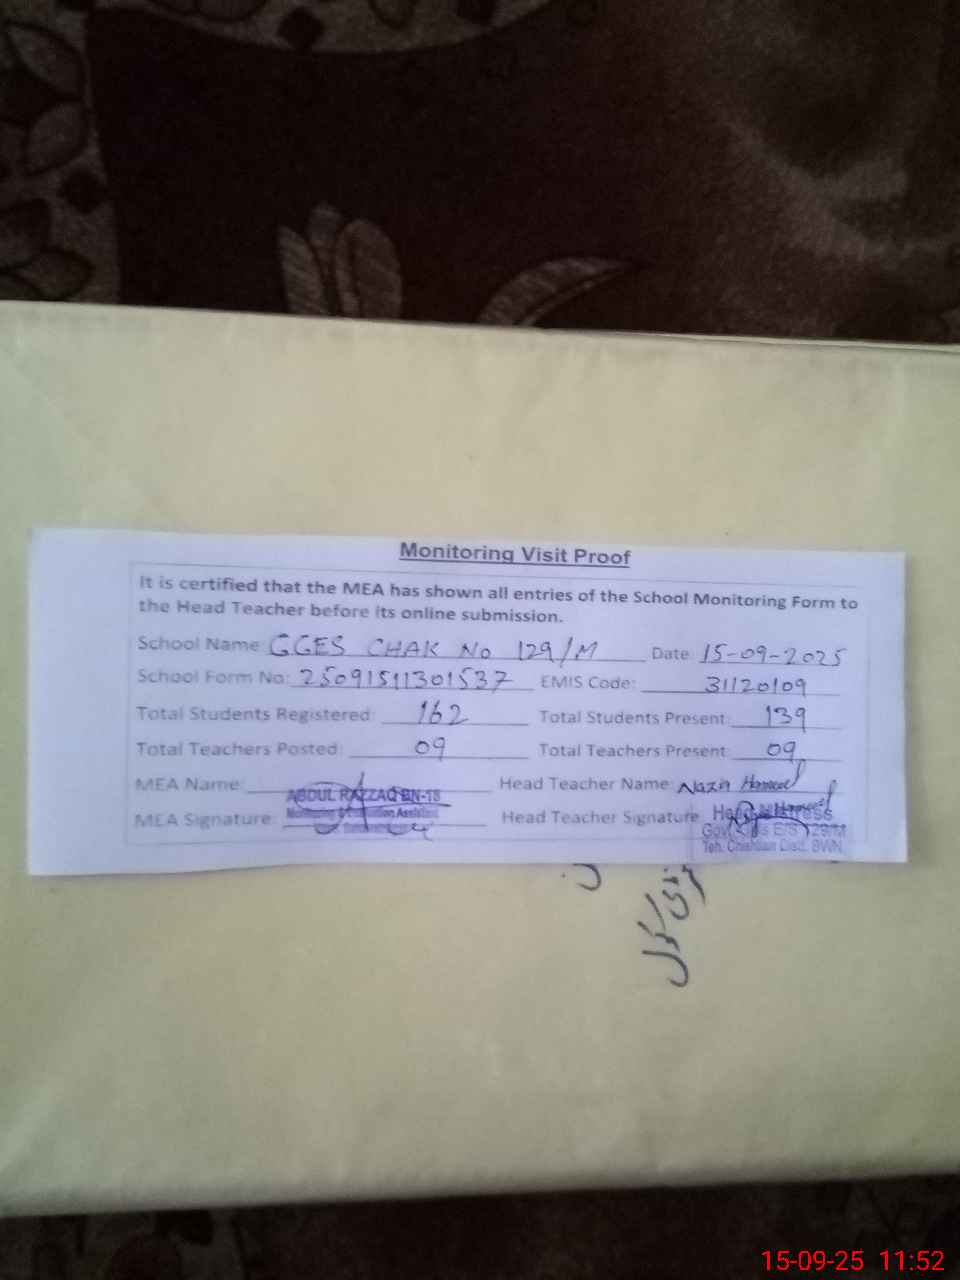 Monitoring Visit Proof
It is certified that the MEA has shown all entries of the School Monitoring Form to
the Head Teacher before its online submission.
School Name: GGES CHAK No 129/M Date: 15-09-2025
School Form No: 25091511301537 EMIS Code: 31120109
Total Students Registered: 162 Total Students Present: 139
Total Teachers Posted: 09 Total Teachers Present: 09
MEA Name: Head Teacher Name: Nazia
ABDUL RAZZAQ BN-18
Monitoring & Evaluation Assistant
MEA Signature: Head Teacher Signature
Head Mistress
Govt. Girls E/S 129/M
Teh. Chishtian Distt. BWN
15-09-25 11:52